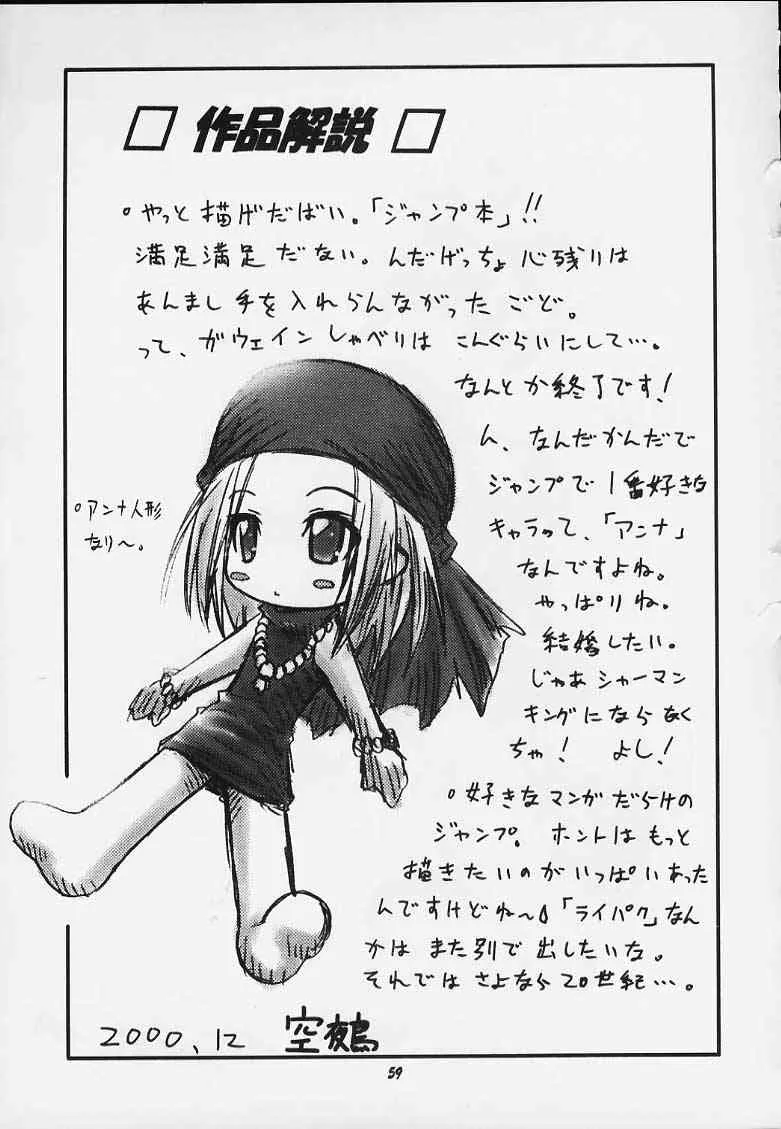 □ 作品解説 □
°やっと描げだばい。「ジャンプ本」!!
満足満足だない。んだげっちょ心残りは
あんまし手を入れらんながったごど。
って、ガウェインしゃべりはこんぐらいにして…。
なんとか終了です!
ん、なんだかんだで
ジャンプで1番好きな
キャラって、「アンナ」
なんですよね。
やっぱりね。
結婚したい。
じゃあシャーマン
キングにならなく
ちゃ! よし!
°アンナ人形
なり〜。
°好きなマンガだらけの
ジャンプ。ホントはもっと
描きたいのがいっぱいあった
んですけどね〜 「ライパク」なん
かはまた別で出したいな。
それではさよなら20世紀…。
2000、12 空夜鳥
59